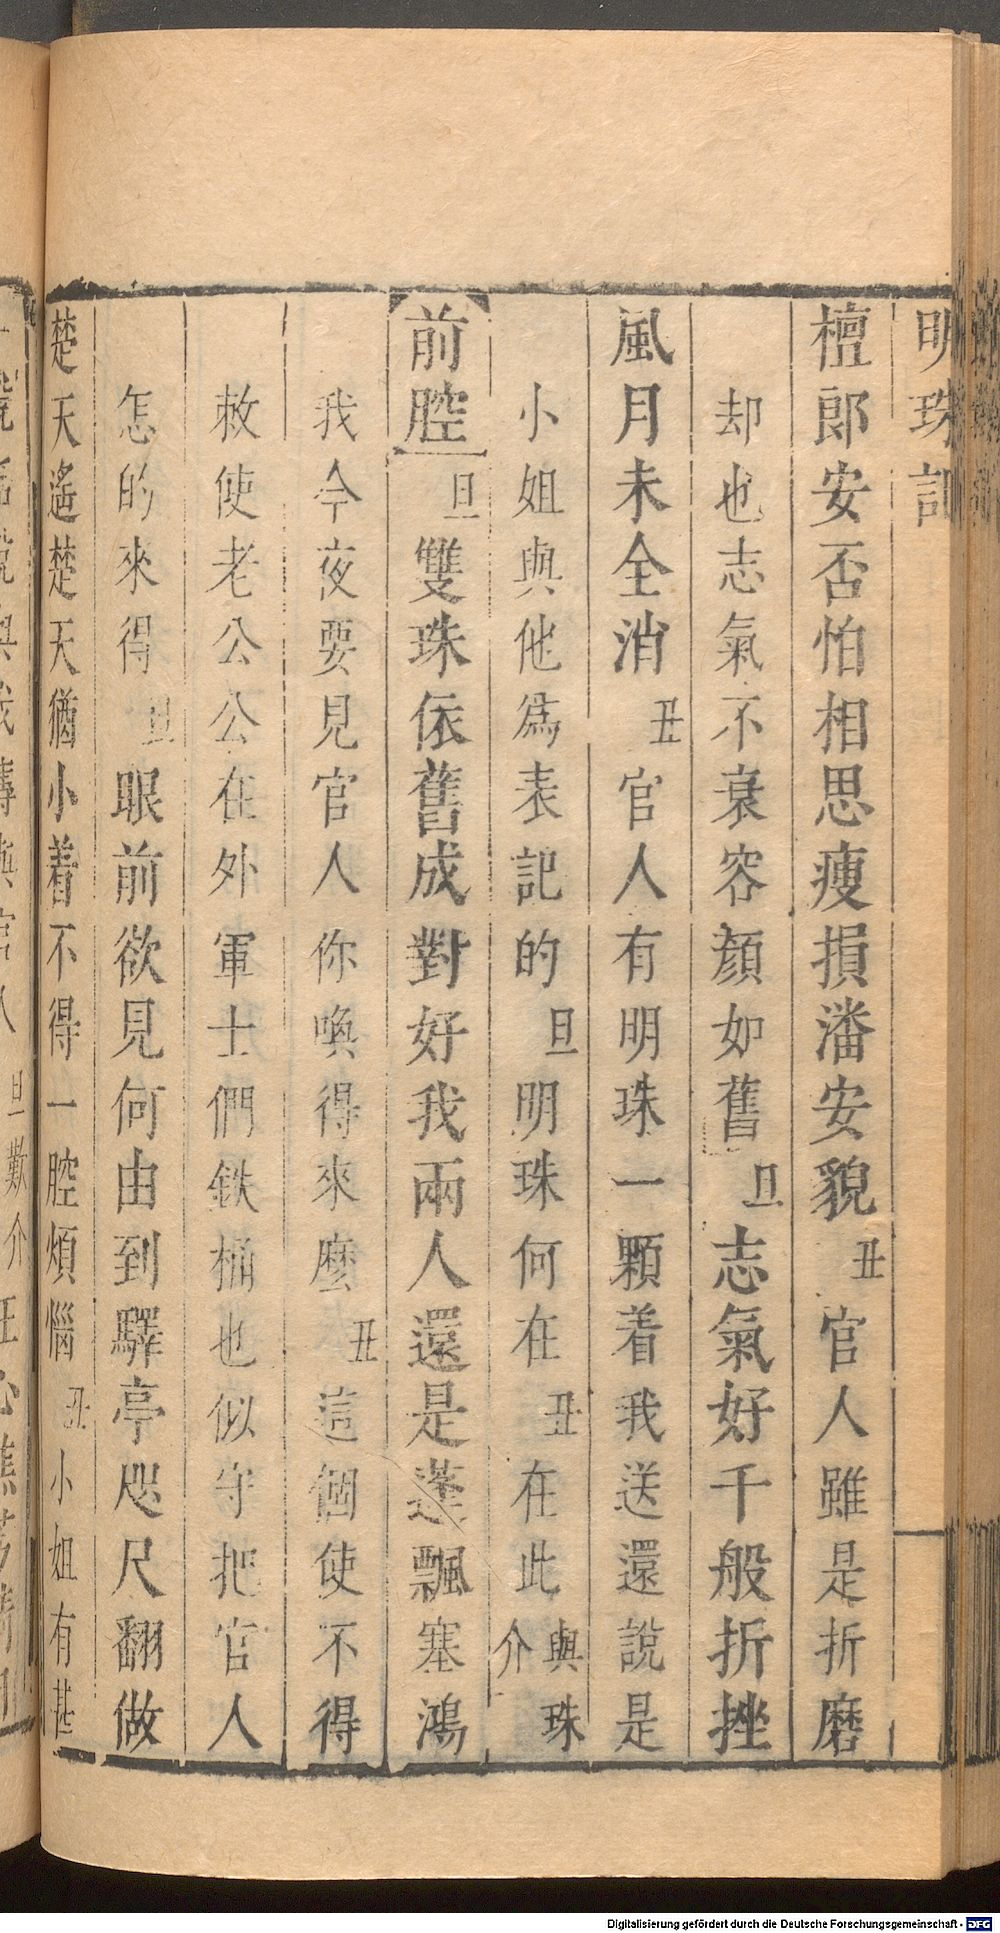 明珠記
檀郎安否怕相思瘦損潘安貌丑官人雖是折磨
却也志氣不衰容顏如舊旦志氣好千般折挫
風月未全消丑官人有明珠一顆着我送還說是
小姐與他爲表記的旦明珠何在丑在此與珠介
前腔旦雙珠依舊成對好我兩人還是蓬飄塞鴻
我今夜要見官人你喚得來麽丑這個使不得
敕使老公公在外軍士們鉄桶也似守把官人
怎的來得旦眼前欲見何由到驛亭咫尺翻做
楚天遙楚天猶小着不得一腔煩惱丑小姐有甚
旦歎介
Digitalisierung gefördert durch die Deutsche Forschungsgemeinschaft - DFG